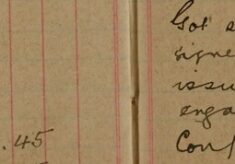 .45
Got
signe
issu
enga
Conf